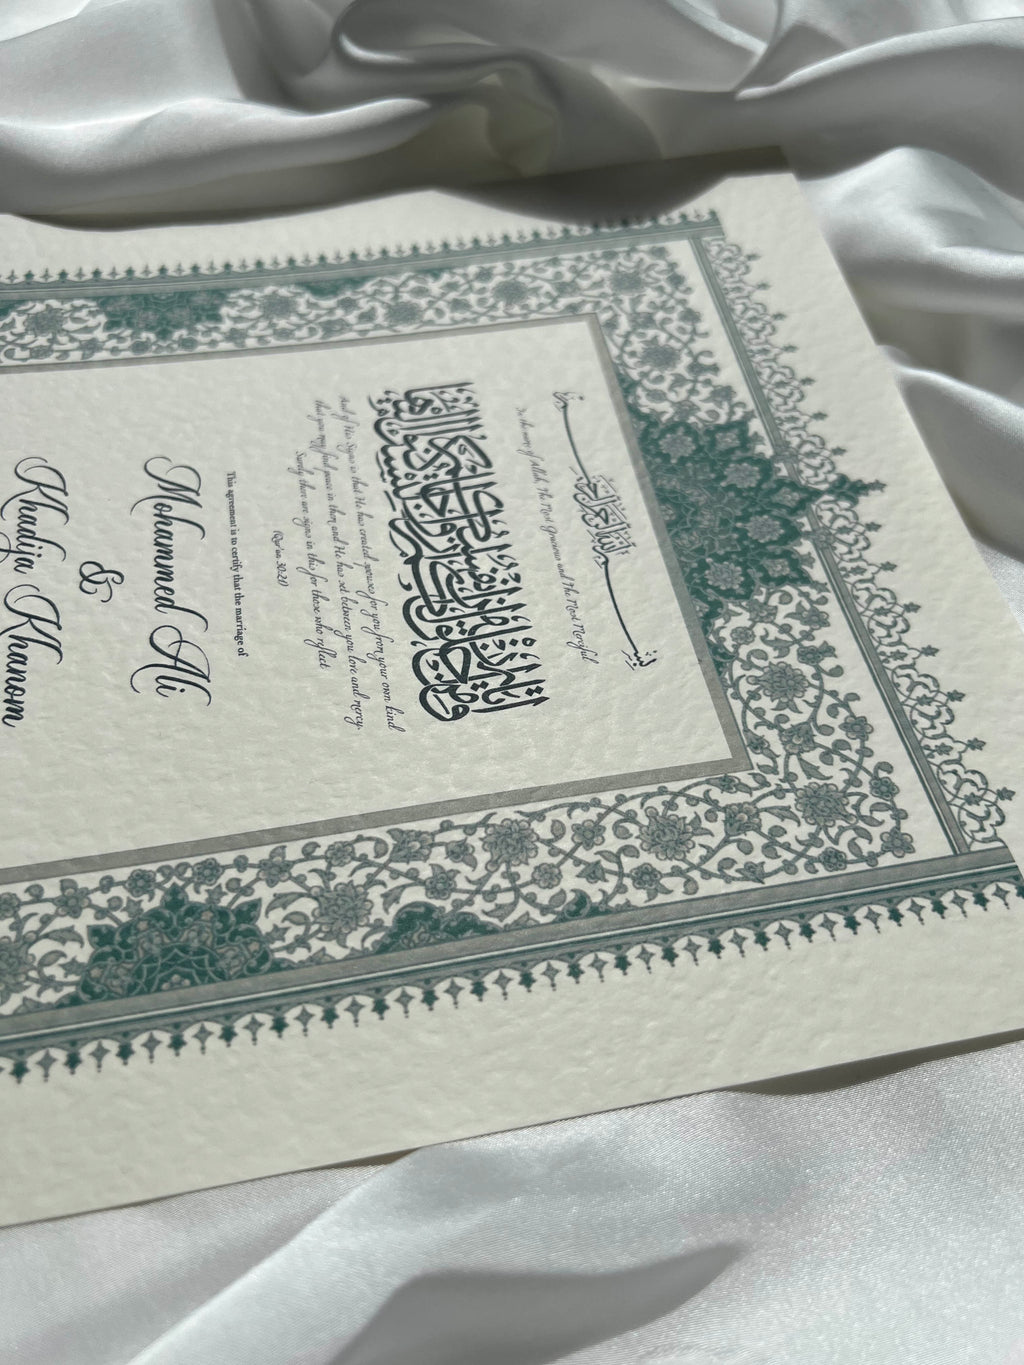 بسم الله الرحمن الرحيم
In the name of Allah, the Most Gracious and the Most Merciful
And of His Signs is that He has created spouses for you from your own kind
that you may find peace in them and He has set between you love and mercy.
Surely there are signs in this for those who reflect
(Qur'an 30:20)
This agreement is to certify that the marriage of
Mohammed Ali
&
Khadija Khanom